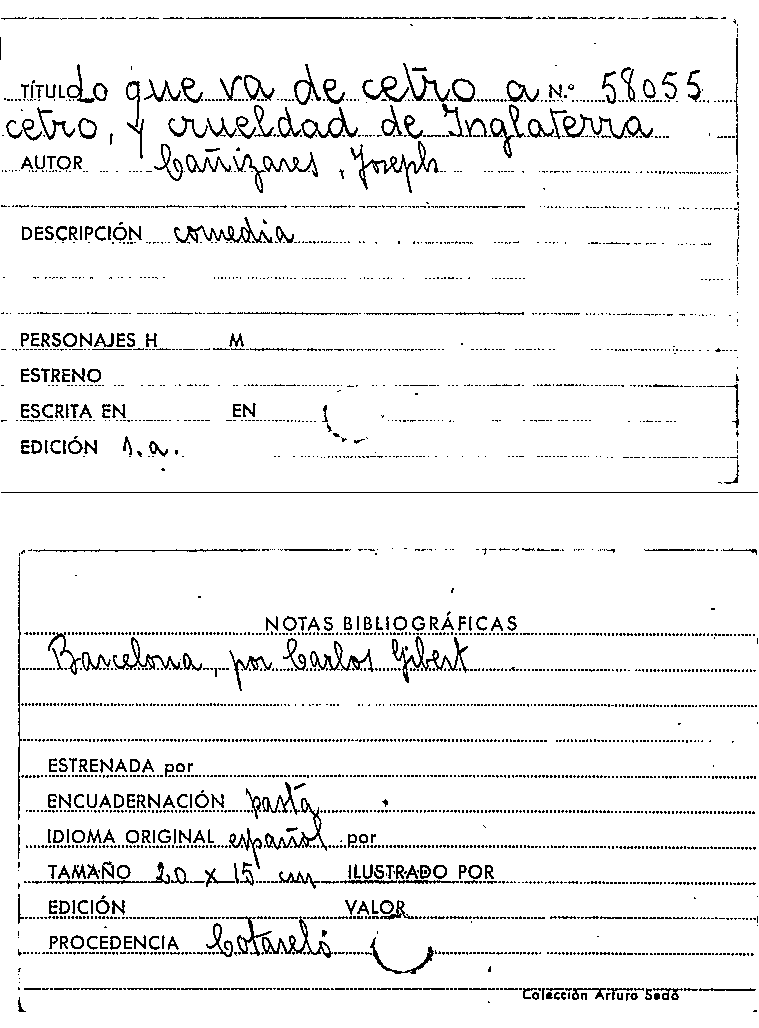 TÍTULO Lo que va de cetro a N.º 58055
cetro, y crueldad de Inglaterra
AUTOR Cañizares, Joseph
DESCRIPCIÓN comedia
PERSONAJES H M
ESTRENO
ESCRITA EN EN
EDICIÓN s.a.
NOTAS BIBLIOGRÁFICAS
Barcelona, por Carlos Gibert
ESTRENADA por
ENCUADERNACIÓN pasta
IDIOMA ORIGINAL español por
TAMAÑO 20 x 15 cm ILUSTRADO POR
EDICIÓN VALOR
PROCEDENCIA Cotareló
Colección Arturo Sedó